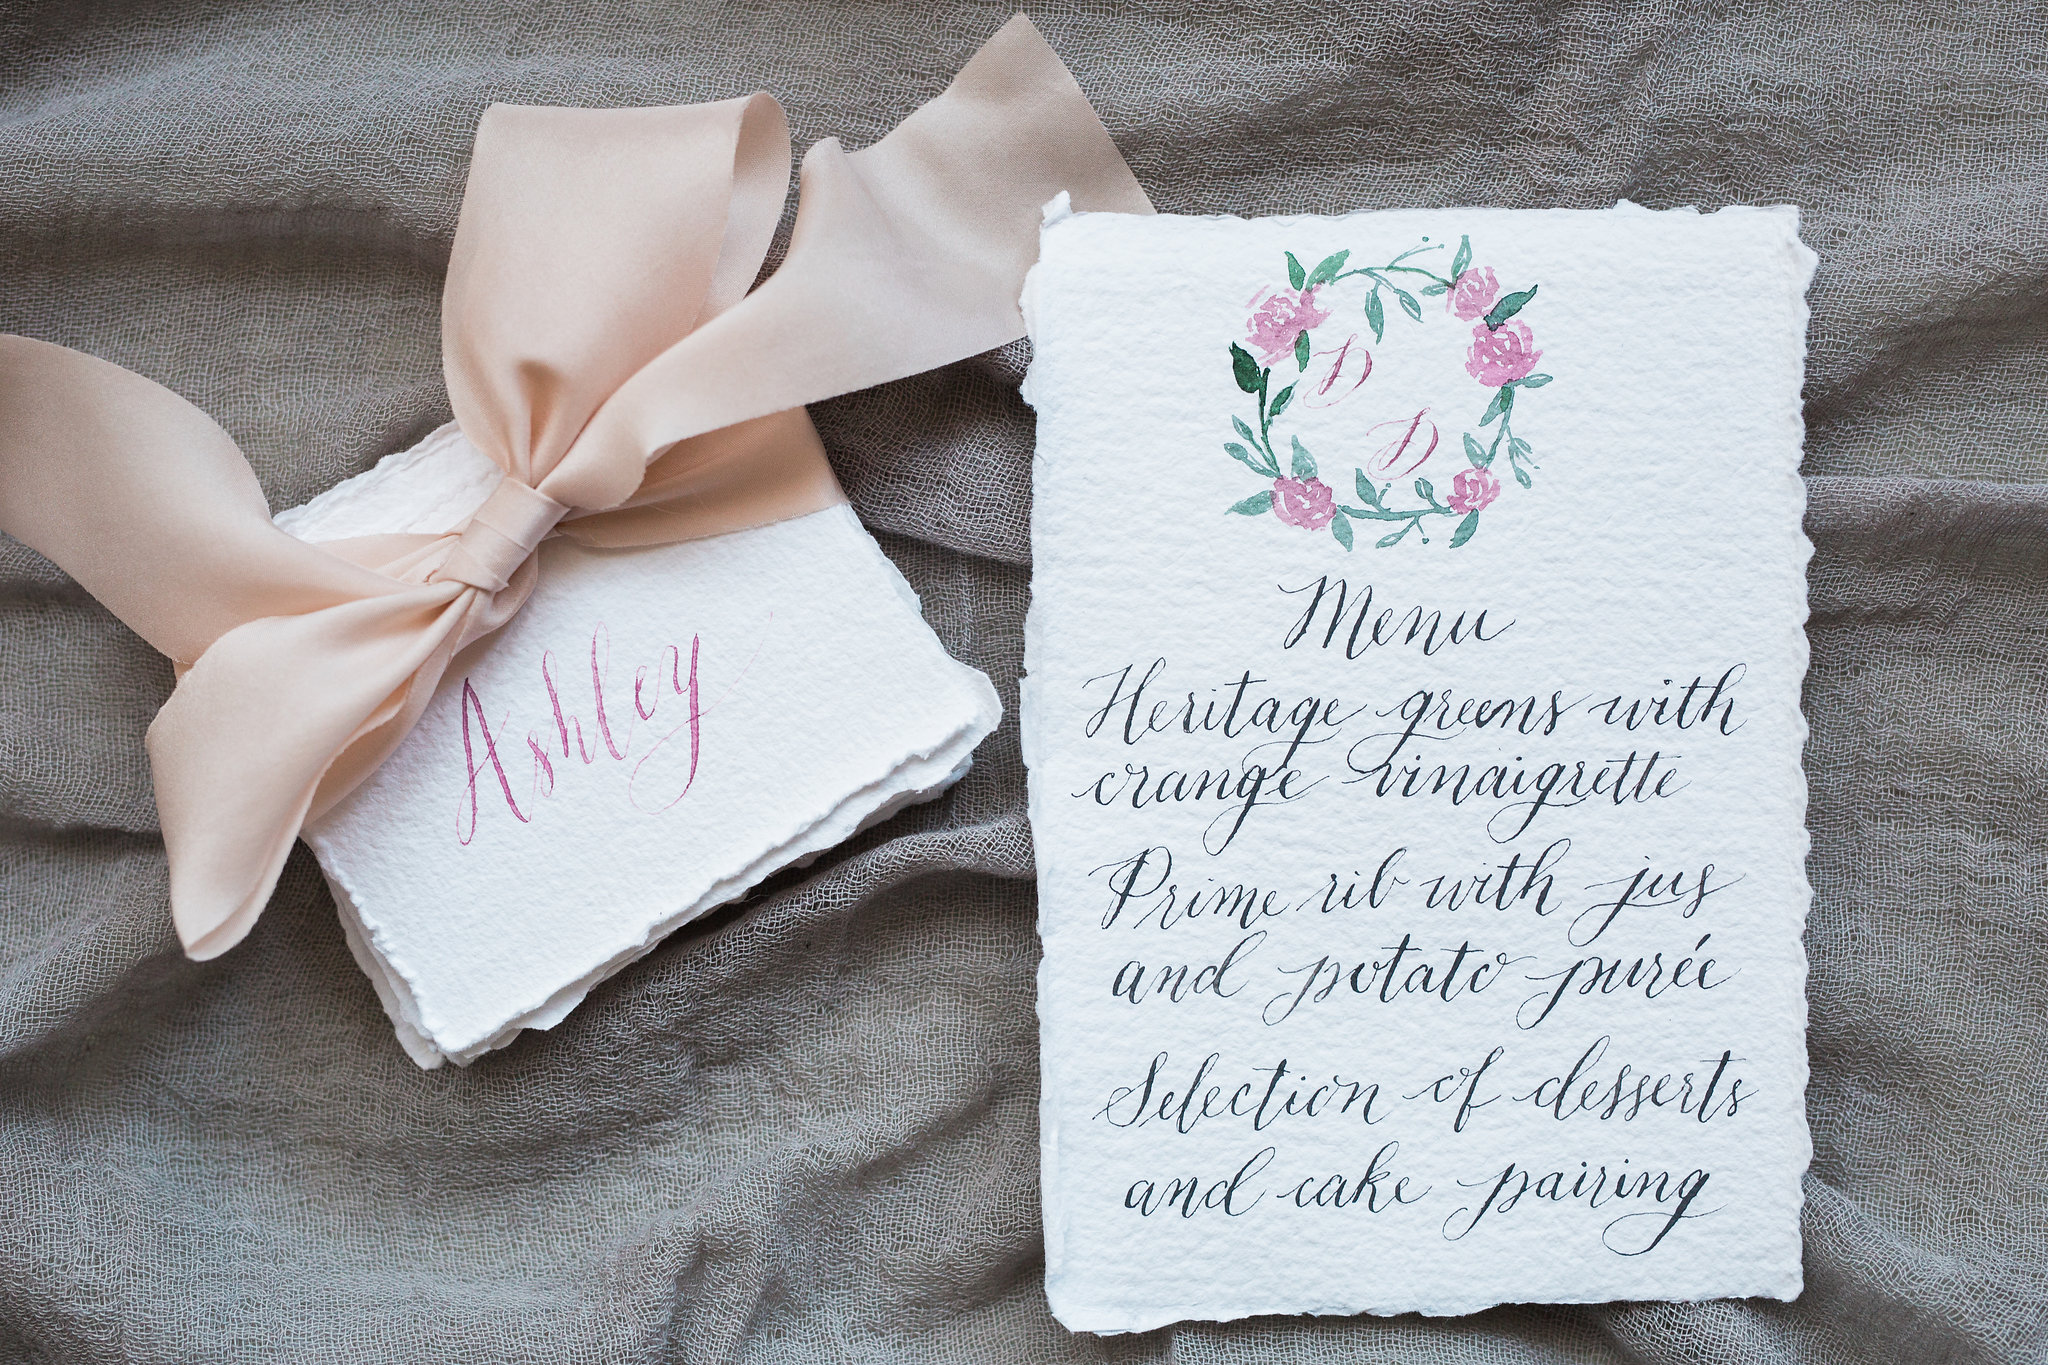 Ashley
D
D
Menu
Heritage greens with
orange vinaigrette
Prime rib with jus
and potato purée
Selection of desserts
and cake pairing